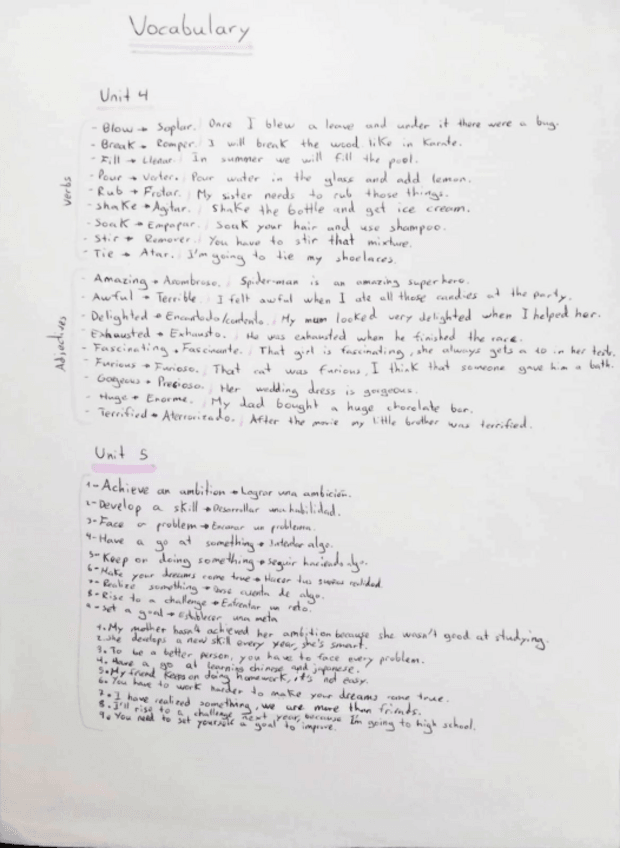 Vocabulary
Unit 4
Verbs
- Blow → Soplar. Once I blew a leave and under it there were a bug.
- Break → Romper. I will break the wood like in Karate.
- Fill → Llenar. In summer we will fill the pool.
- Pour → Verter. Pour water in the glass and add lemon.
- Rub → Frotar. My sister needs to rub those things.
- Shake → Agitar. Shake the bottle and get ice cream.
- Soak → Empapar. Soak your hair and use shampoo.
- Stir → Remover. You have to stir that mixture.
- Tie → Atar. I'm going to tie my shoelaces.
Adjectives
- Amazing → Asombroso. Spider-man is an amazing superhero.
- Awful → Terrible. I felt awful when I ate all those candies at the party.
- Delighted → Encantado/contento. My mum looked very delighted when I helped her.
- Exhausted → Exhausto. He was exhausted when he finished the race.
- Fascinating → Fascinante. That girl is fascinating, she always gets a 10 in her tests.
- Furious → Furioso. That cat was furious, I think that someone gave him a bath.
- Gorgeous → Precioso. Her wedding dress is gorgeous.
- Huge → Enorme. My dad bought a huge chocolate bar.
- Terrified → Aterrorizado. After the movie my little brother was terrified.
Unit 5
1- Achieve an ambition → Lograr una ambición.
2- Develop a skill → Desarrollar una habilidad.
3- Face a problem → Encarar un problema.
4- Have a go at something → Intentar algo.
5- Keep on doing something → Seguir haciendo algo.
6- Make your dreams come true → Hacer tus sueños realidad.
7- Realize something → Darse cuenta de algo.
8- Rise to a challenge → Enfrentar un reto.
9- Set a goal → Establecer una meta
1. My mother hasn't achieved her ambition because she wasn't good at studying.
2. She develops a new skill every year, she's smart.
3. To be a better person, you have to face every problem.
4. Have a go at learning chinese and japanese.
5. My friend keeps on doing homework, it's not easy.
6. You have to work harder to make your dreams come true.
7. I have realized something, we are more than friends.
8. I'll rise to a challenge next year, because I'm going to high school.
9. You need to set yourself a goal to improve.